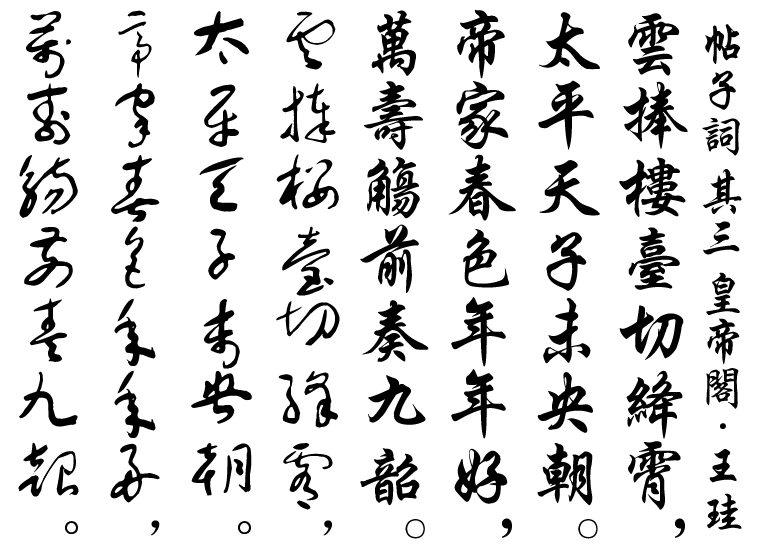 帖子詞 其三 皇帝閣·王珪
雲捧樓臺切絳霄，
太平天子未央朝。
帝家春色年年好，
萬壽觴前奏九韶。
雲捧樓臺切絳霄，
太平天子未央朝。
帝家春色年年好，
萬壽觴前奏九韶。